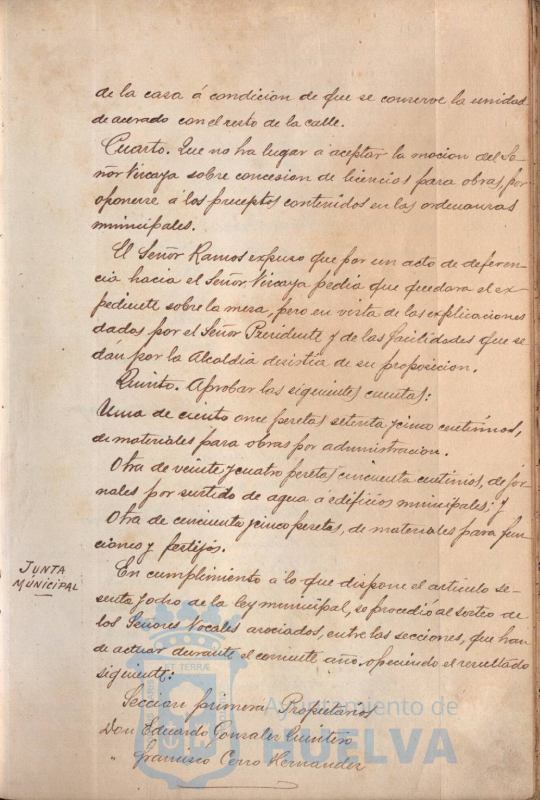 de la casa á condicion de que se conserve la unidad
de acerado con el resto de la calle.
Cuarto. Que no ha lugar á aceptar la mocion del Se-
ñor Vizcaya sobre concesion de licencias para obras, por
oponerse á los preceptos contenidos en las ordenanzas
municipales.
El Señor Ramos expuso que por un acto de deferen-
cia hacia el Señor Vizcaya pedia que quedara el ex-
pediente sobre la mesa, pero en vista de las explicaciones
dadas por el Señor Presidente y de las facilidades que se
dán por la Alcaldia desistia de su proposicion.
Quinto. Aprobar las siguientes cuentas:
Una de ciento once pesetas setenta y cinco centimos,
de materiales para obras por administracion.
Otra de veinte y cuatro pesetas cincuenta centimos, de jor-
nales por surtido de agua á edificios municipales; y
Otra de cincuenta y cinco pesetas, de materiales para fun-
ciones y festejos.
JUNTA
MUNICIPAL
En cumplimiento á lo que dispone el articulo se-
senta y ocho de la ley municipal, se procedió al sorteo de
los Señores Vocales asociados, entre las secciones, que han
de actuar durante el corriente año, ofreciendo el resultado
siguiente:
Seccion primera Propietarios
Don Eduardo Gonzalez Quintero
" Francisco Cerro Hernandez
Ayuntamiento de
HUELVA